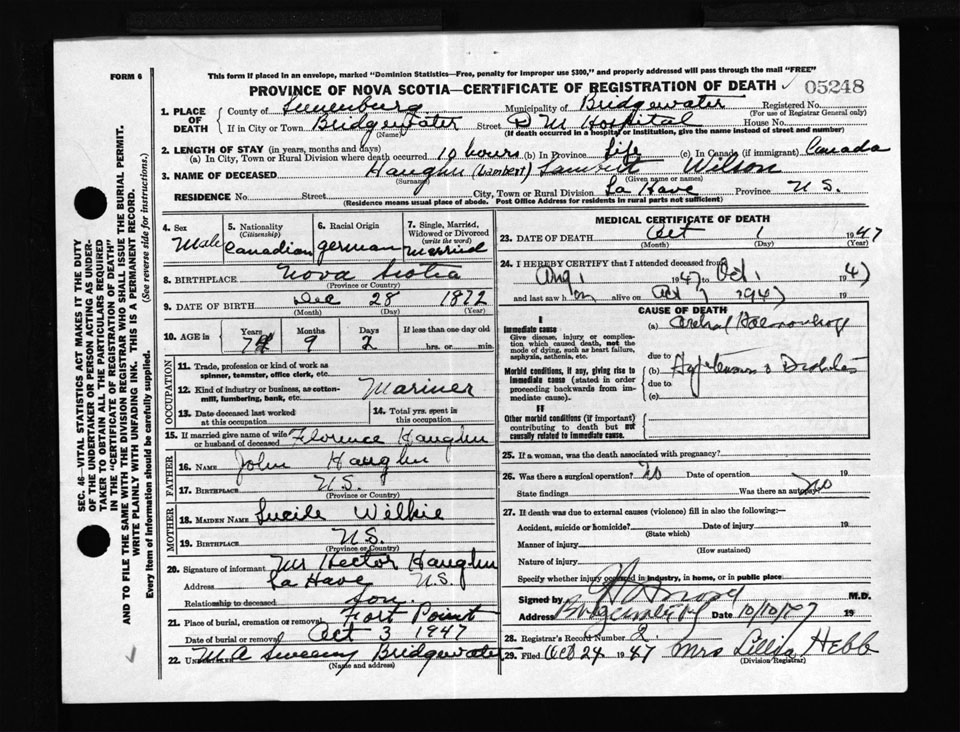 FORM 6
This form if placed in an envelope, marked "Dominion Statistics—Free, penalty for improper use $300," and properly addressed will pass through the mail "FREE"
PROVINCE OF NOVA SCOTIA—CERTIFICATE OF REGISTRATION OF DEATH 05248
1. PLACE OF DEATH
County of Lunenburg Municipality of Bridgewater Registered No.
(For use of Registrar General only)
If in City or Town Bridgewater Street D M Hospital House No.
(Name) (If death occurred in a hospital or institution, give the name instead of street and number)
2. LENGTH OF STAY (in years, months and days)
(a) In City, Town or Rural Division where death occurred 10 hours (b) In Province Life (c) In Canada (if immigrant) Canada
3. NAME OF DECEASED Haughn (Lambert) Lambert Wilson
(Surname) (Given name or names)
RESIDENCE No. Street City, Town or Rural Division La Have Province N.S.
(Residence means usual place of abode. Post Office Address for residents in rural parts not sufficient)
4. Sex Male
5. Nationality (Citizenship) Canadian
6. Racial Origin german
7. Single, Married, Widowed or Divorced (write the word) Married
8. BIRTHPLACE Nova Scotia
(Province or Country)
9. DATE OF BIRTH Dec 28 1872
(Month) (Day) (Year)
10. AGE in Years 74 Months 9 Days 2 If less than one day old hrs. or min.
OCCUPATION
11. Trade, profession or kind of work as spinner, teamster, office clerk, etc.
12. Kind of industry or business, as cotton-mill, lumbering, bank, etc. Mariner
13. Date deceased last worked at this occupation
14. Total yrs. spent in this occupation
15. If married give name of wife or husband of deceased Florence Haughn
FATHER
16. NAME John Haughn
17. BIRTHPLACE N.S.
(Province or Country)
MOTHER
18. MAIDEN NAME Lucile Wilkie
19. BIRTHPLACE N.S.
(Province or Country)
20. Signature of informant Mr Hector Haughn
Address La Have N.S.
Relationship to deceased Son.
21. Place of burial, cremation or removal Fort Point
Date of burial or removal Oct 3 1947
22. UNDERTAKER M A Sweeny Bridgewater
(Name and address)
MEDICAL CERTIFICATE OF DEATH
23. DATE OF DEATH Oct 1 1947
(Month) (Day) (Year)
24. I HEREBY CERTIFY that I attended deceased from
Aug 1 1947 to Oct 1 1947
and last saw h im alive on Oct 1 1947 19
CAUSE OF DEATH
I
Immediate cause
Give disease, injury or complication which caused death, not the mode of dying, such as heart failure, asphyxia, asthenia, etc.
(a) Cerebral Haemorrhage
due to
Morbid conditions, if any, giving rise to immediate cause (stated in order proceeding backwards from immediate cause).
(b) Hypertension & Diabetes
due to
(c)
II
Other morbid conditions (if important) contributing to death but not causally related to immediate cause.
25. If a woman, was the death associated with pregnancy?
26. Was there a surgical operation? no Date of operation 19
State findings Was there an autopsy? no
27. If death was due to external causes (violence) fill in also the following:—
Accident, suicide or homicide? Date of injury 19
(State which)
Manner of injury
(How sustained)
Nature of injury
Specify whether injury occurred in industry, in home, or in public place
Signed by M.D.
Address Bridgewater Date 10/10/47 19
28. Registrar's Record Number 2
29. Filed Oct 24 1947 Mrs Lillia Hebb
(Division Registrar)
SEC. 46—VITAL STATISTICS ACT MAKES IT THE DUTY OF THE UNDERTAKER OR PERSON ACTING AS UNDERTAKER TO OBTAIN ALL THE PARTICULARS REQUIRED IN THE "CERTIFICATE OF REGISTRATION OF DEATH" AND TO FILE THE SAME WITH THE DIVISION REGISTRAR WHO SHALL ISSUE THE BURIAL PERMIT.
WRITE PLAINLY WITH UNFADING INK. THIS IS A PERMANENT RECORD.
Every item of information should be carefully supplied. (See reverse side for instructions.)